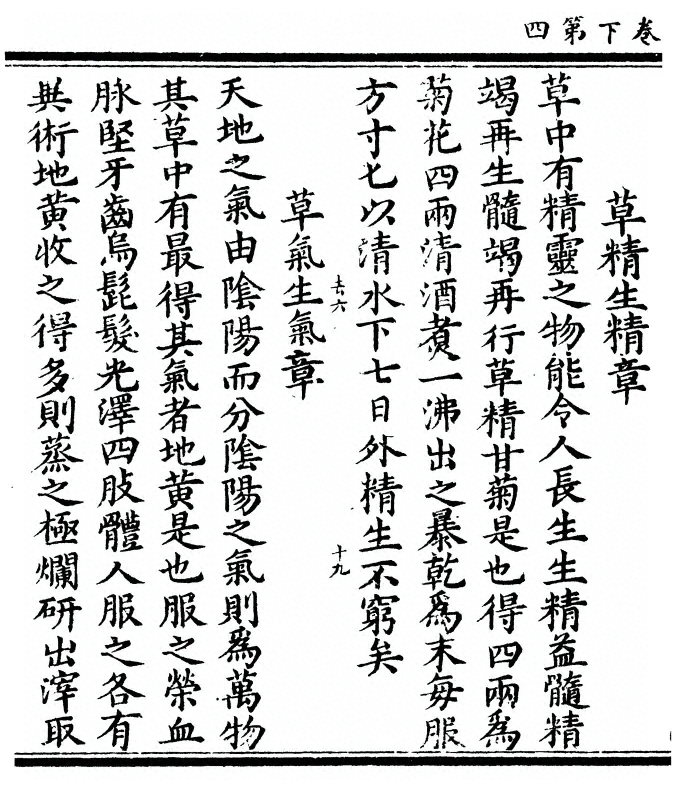 卷下第四
草精生精章
草中有精靈之物能令人長生生精益髓精
竭再生髓竭再行草精甘菊是也得四兩爲
菊花四兩清酒煑一沸出之暴乾爲末每服
方寸匕以清水下七日外精生不窮矣
去六
十九
草氣生氣章
天地之氣由陰陽而分陰陽之氣則爲萬物
其草中有最得其氣者地黃是也服之榮血
脉堅牙齒烏髭髮光澤四肢體人服之各有
異術地黃收之得多則蒸之極爛研出滓取